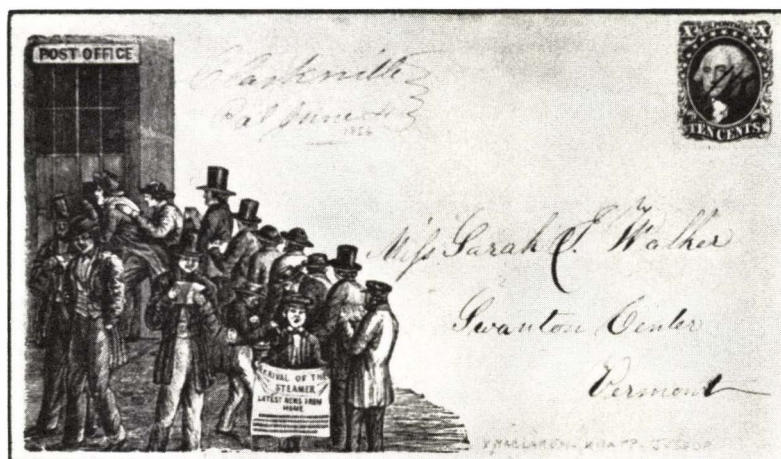 POST OFFICE
Clarksville
Cal June 4
1856
X X
TEN CENTS.
Miss Sarah E. Walker
Swanton Center
Vermont
ARRIVAL OF THE
STEAMER
LATEST NEWS FROM
HOME
KNAPP